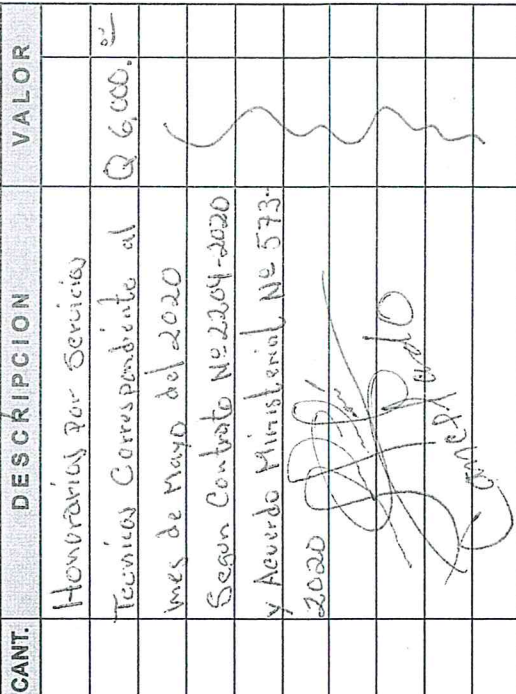 CANT. DESCRIPCION VALOR
Honorarios por Servicios
Tecnicos Correspondiente al Q 6,000.
mes de Mayo del 2020
Segun Contrato Nº 2204-2020
y Acuerdo Ministerial Nº 573-
2020
Cancelado